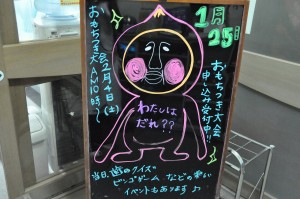 1月
25日
おもちつき大会
申し込み受付中!!
おもちつき大会
2月4日(土)
AM10時〜
わたしは
だれ??
当日、
のクイズや
ビンゴゲーム などの楽しい
イベントもあります♪